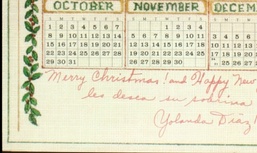 OCTOBER NOVEMBER DECEM
1 2 3 4 5 6 7
8 9 10 11 12 13 14
15 16 17 18 19 20 21
22 23 24 25 26 27 28
29 30 31
1 2 3 4
5 6 7 8 9 10 11
12 13 14 15 16 17 18
19 20 21 22 23 24 25
26 27 28 29 30
Merry Christmas! and Happy New
les desea su sobrina
Yolanda Díaz!